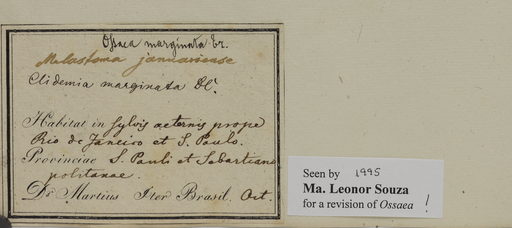 Ossaea marginata Tr.
Melastoma januariense
Clidemia marginata DC.
Habitat in sylvis aeternis prope
Rio de Janeiro et S. Paulo.
Provinciae S. Pauli et Sebastiano
politanae.
Dr. Martius Iter Brasil. Oct.
Seen by 1995
Ma. Leonor Souza
for a revision of Ossaea !